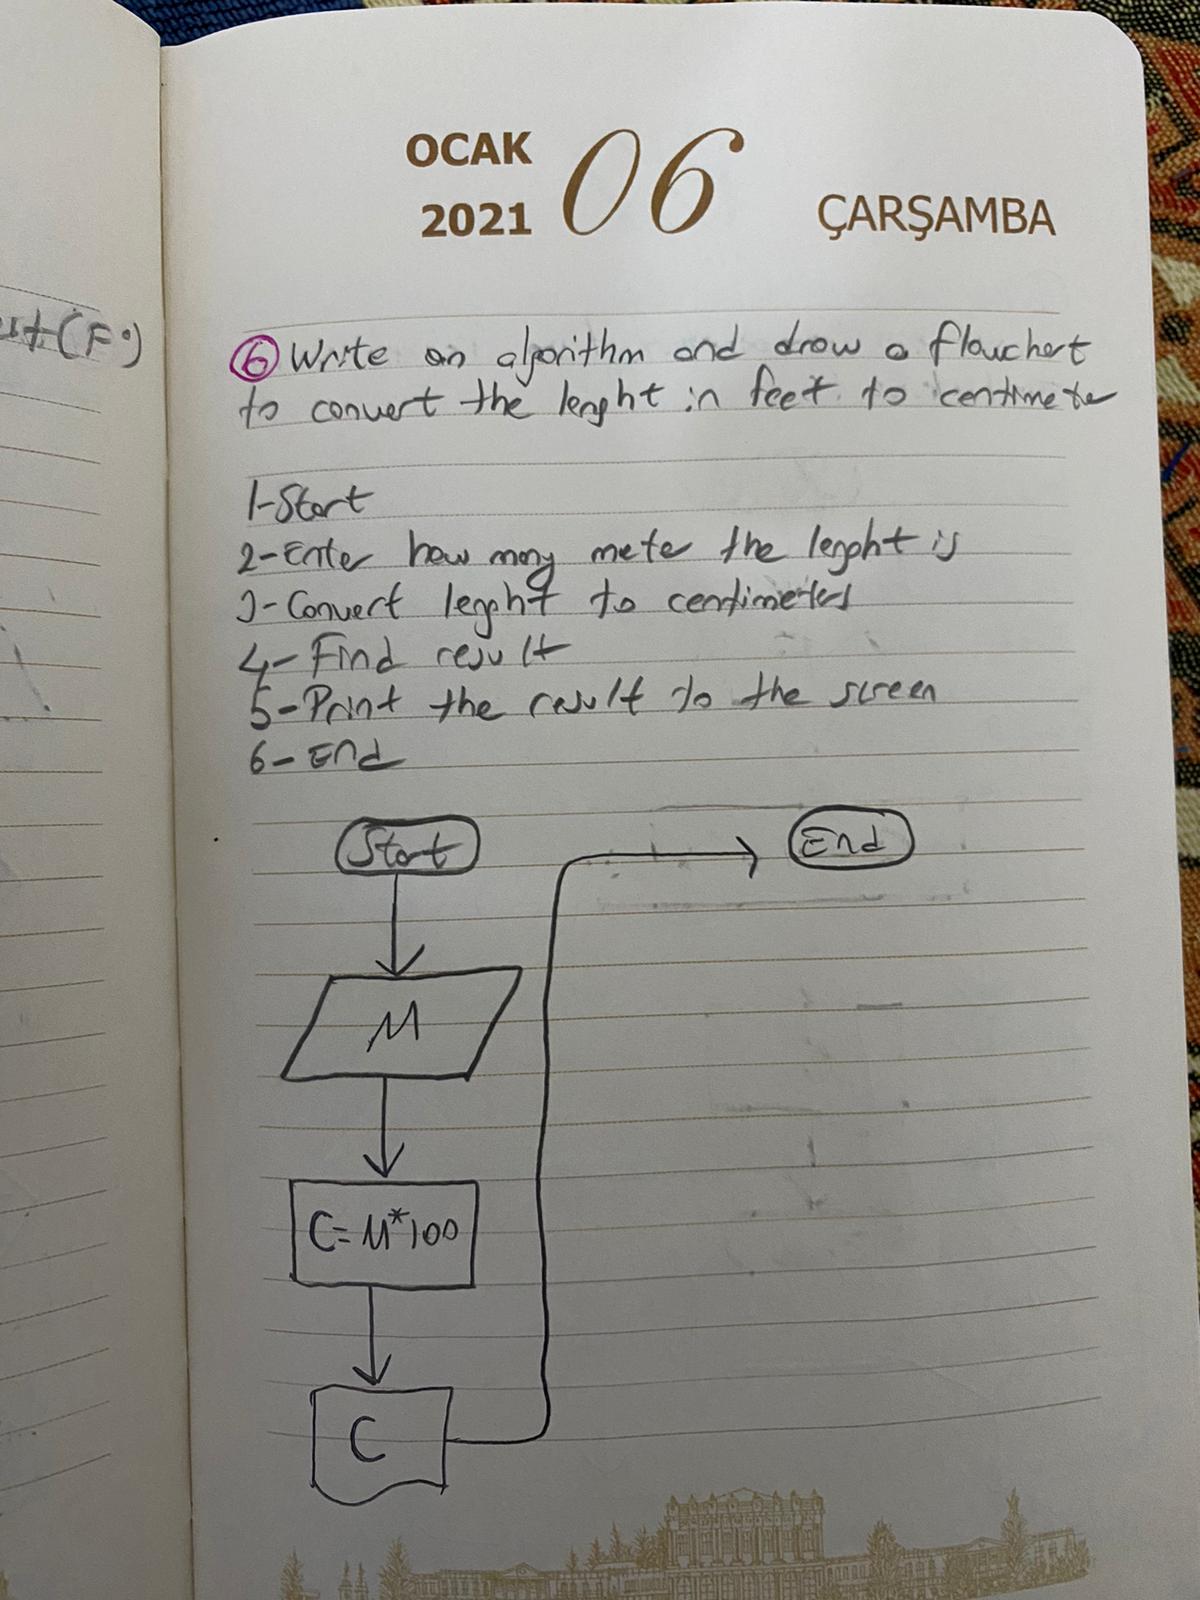 OCAK
2021
06
ÇARŞAMBA
(F°)
6 Write an algorithm and draw a flowchart
to convert the lenght in feet to centimeter
1-Start
2-Enter how many meter the lenght is
3-Convert lenght to centimeters
4-Find result
5-Print the result to the screen
6-End
Start
End
M
C=M*100
C